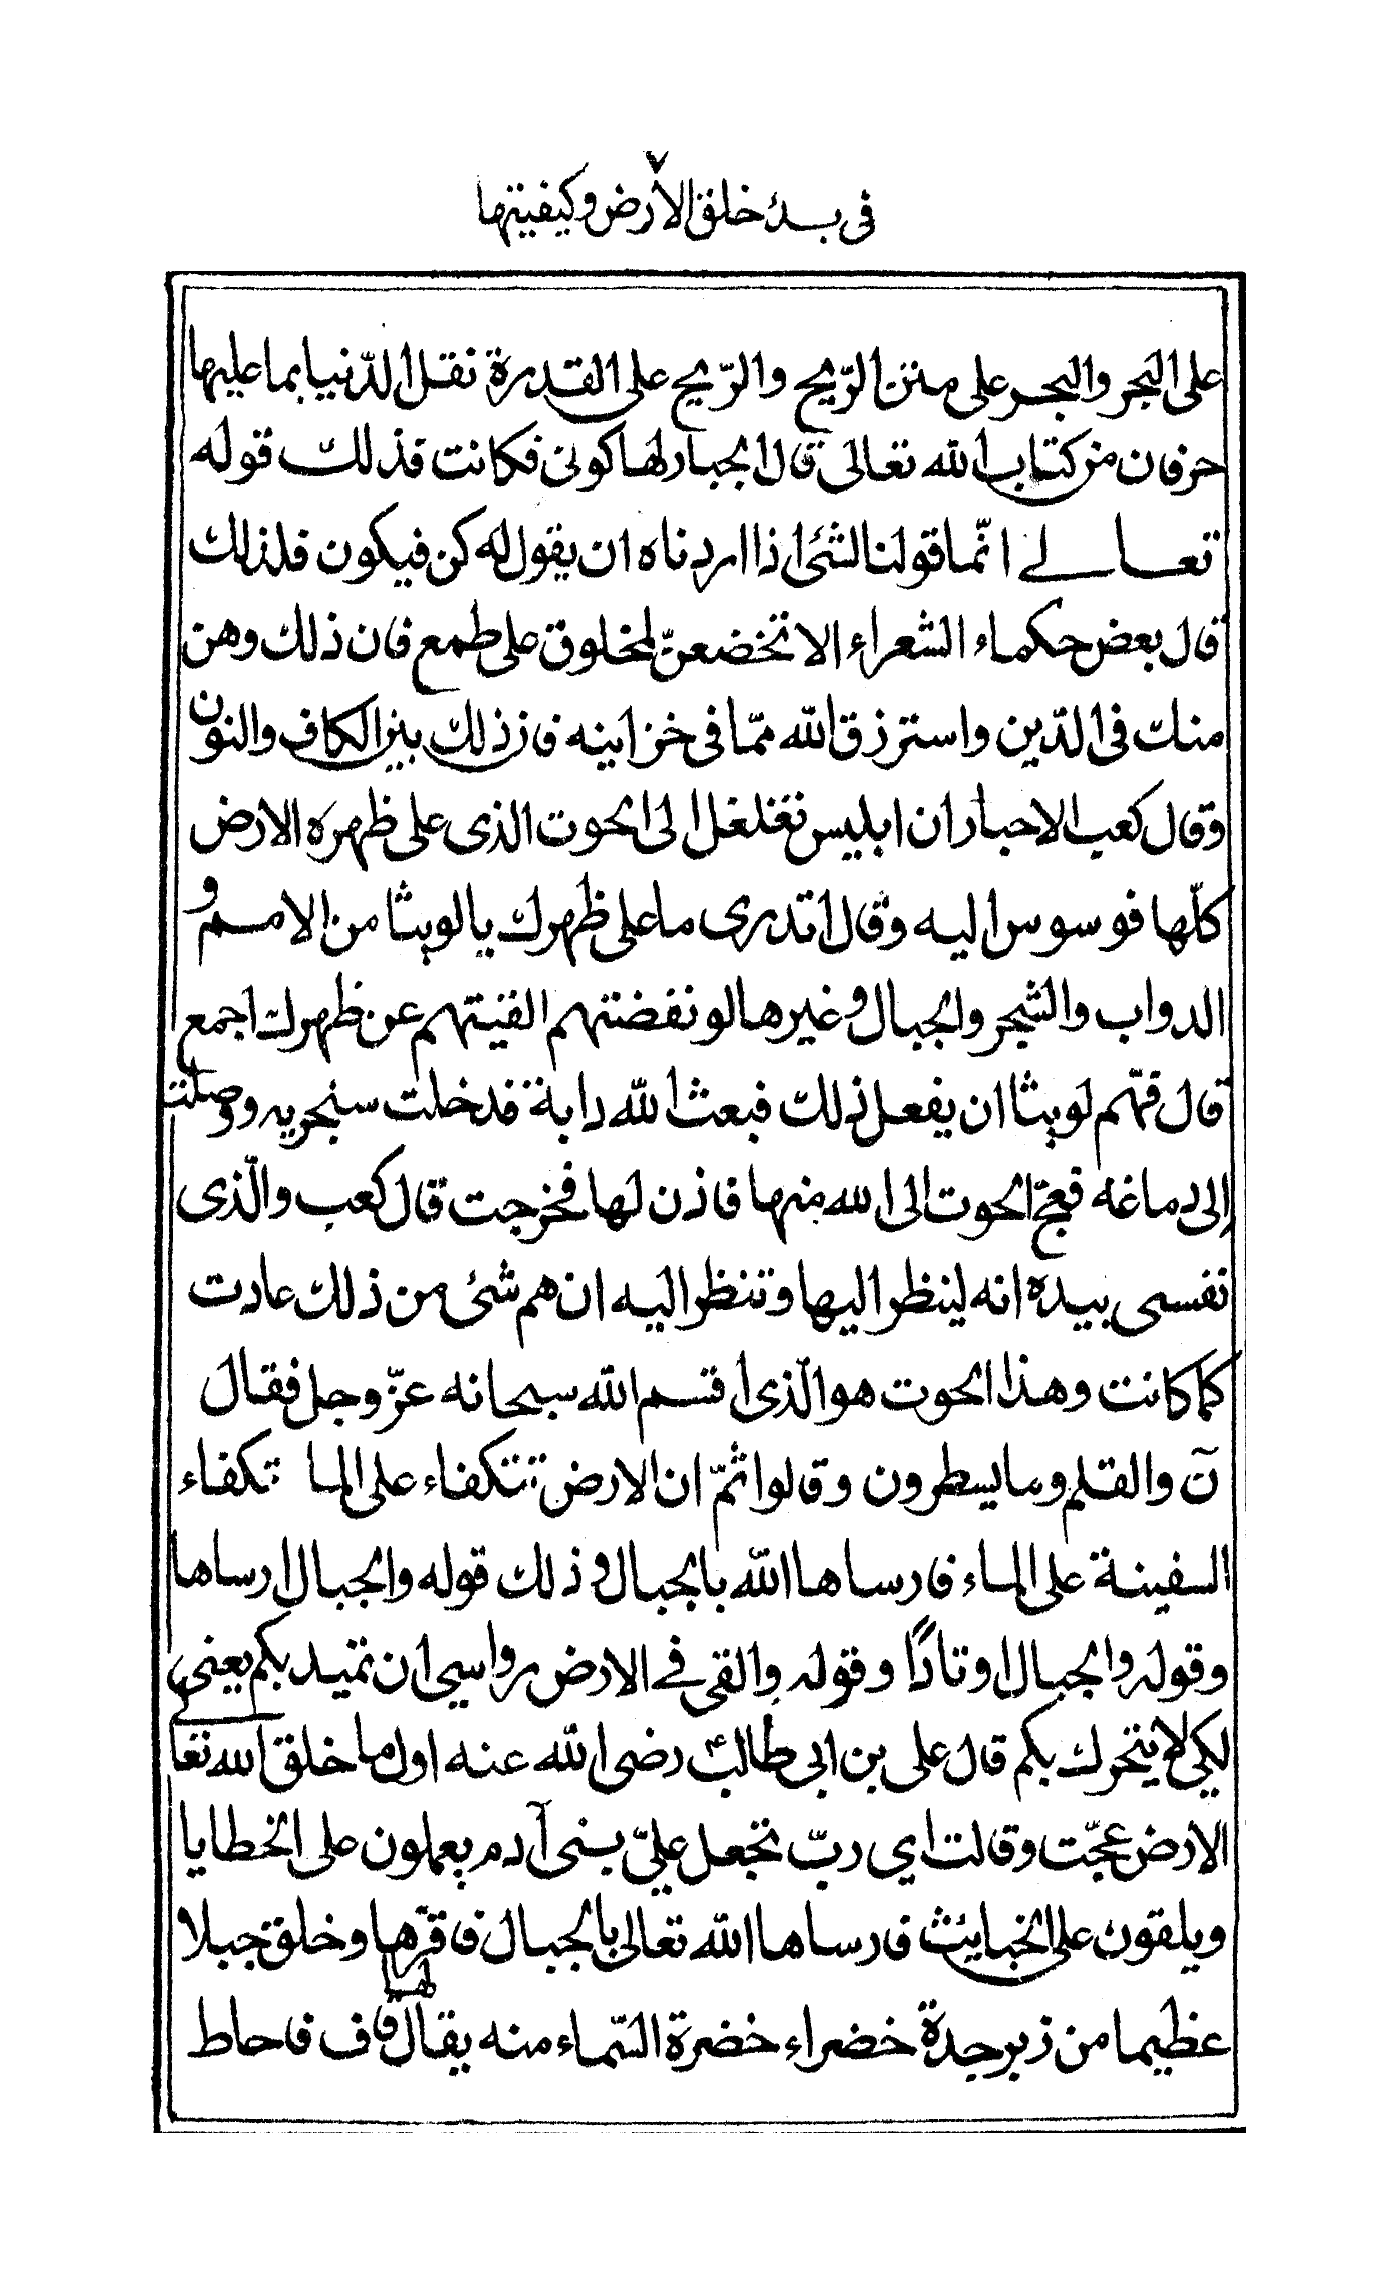 ٧
فى بدئ خلق الارض وكيفيتها
على البحر والبحر على متن الرّيح والرّيح على القدرة نقل الدّنيا بما عليها
حرفان من كتاب الله تعالى قال الجبار لها كونى فكانت فذلك قوله
تعالى انّما قولنا لشئ اذا اردناه ان يقول له كن فيكون فلذلك
قال بعض حكماء الشعراء الا تخضعنّ لمخلوق على طمع فان ذلك وهن
منك فى الدّين واسترزق الله ممّا فى خزاينه فان ذلك بين الكاف والنون
وقال كعب الاحبار ان ابليس تغلغل الى الحوت الذى على ظهره الارض
كلّها فوسوس اليه وقال اتدرى ما على ظهرك يا لوبيثا من الامم و
الدواب والشجر والجبال وغيرها لو نفضتهم القيتهم عن ظهرك اجمع
قال فهّم لوبيثا ان يفعل ذلك فبعث الله دابة فدخلت منخريه ووصلت
الى دماغه فعجّ الحوت الى الله منها فاذن لها فخرجت قال كعب والّذى
نفسى بيده انه لينظر اليها وتنظر اليه ان هم شئ من ذلك عادت
كما كانت وهذا الحوت هو الّذى اقسم الله سبحانه عزّ وجل فقال
نٓ والقلم وما يسطرون وقالوا ثمّ ان الارض تتكفاء على الما تكفاء
السفينة على الماء فارساها الله بالجبال وذلك قوله والجبال ارساها
وقوله والجبال اوتادًا وقوله والقى في الارض رواسى ان تميد بكم يعنى
لكى لا يتحرك بكم قال على بن ابى طالب رضى الله عنه اول ما خلق الله تعا
الارض عجّت وقالت اى ربّ تجعل علىّ بنى آدم يعملون على الخطايا
ويلقون على الخبايث فارساها الله تعالى بالجبال فاقرّها وخلق جبلا
عظيما من زبرجدة خضراء خضرة السّماء منه يقال لها قاف فاحاط